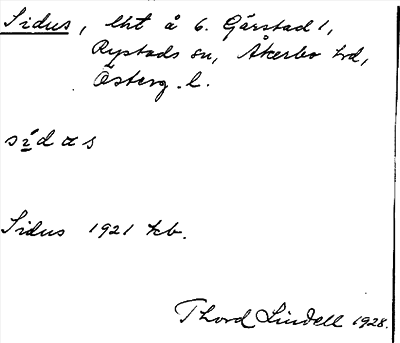 Sidus, lht å 6. Gärstad 1,
Rystads sn, Åkerbo hd,
Österg. l.
sídɑs
Sidus 1921 kb.
Thord Lindell 1928.